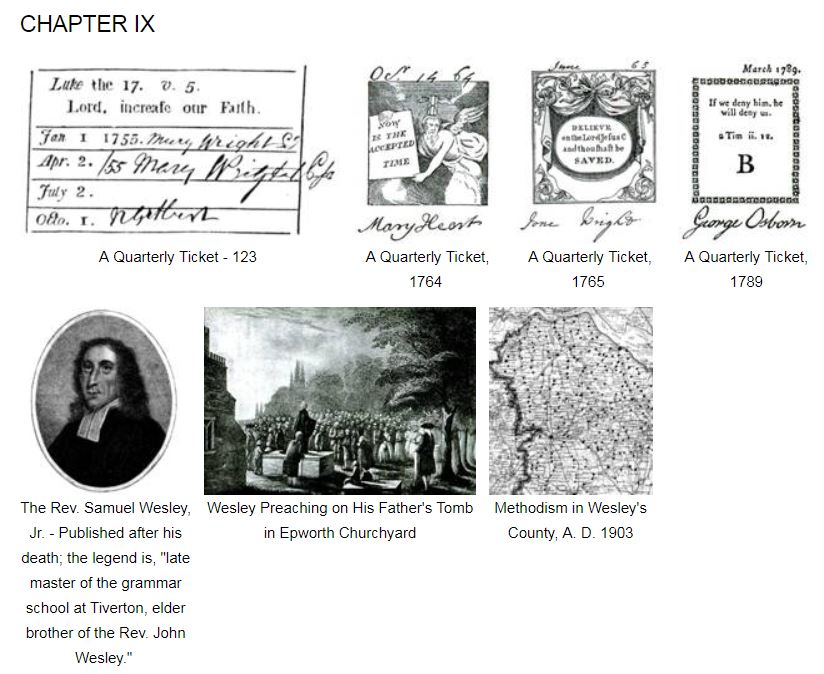 CHAPTER IX
Luke the 17. v. 5.
Lord, increaſe our Faith.
Jan 1 1755. Mary Wright
Apr. 2. /55 Mary
July 2.
Octo. 1.
A Quarterly Ticket - 123
Octr 14 64
NOW
IS THE
ACCEPTED
TIME
Mary Heart
A Quarterly Ticket,
1764
June 65
BELIEVE
on the Lord Jeſus C
and thou ſhalt be
SAVED.
Jone Bright
A Quarterly Ticket,
1765
March 1789.
If we deny him, he
will deny us.
2 Tim ii. 12.
B
George Osborn
A Quarterly Ticket,
1789
The Rev. Samuel Wesley,
Jr. - Published after his
death; the legend is, "late
master of the grammar
school at Tiverton, elder
brother of the Rev. John
Wesley."
Wesley Preaching on His Father's Tomb
in Epworth Churchyard
Methodism in Wesley's
County, A. D. 1903